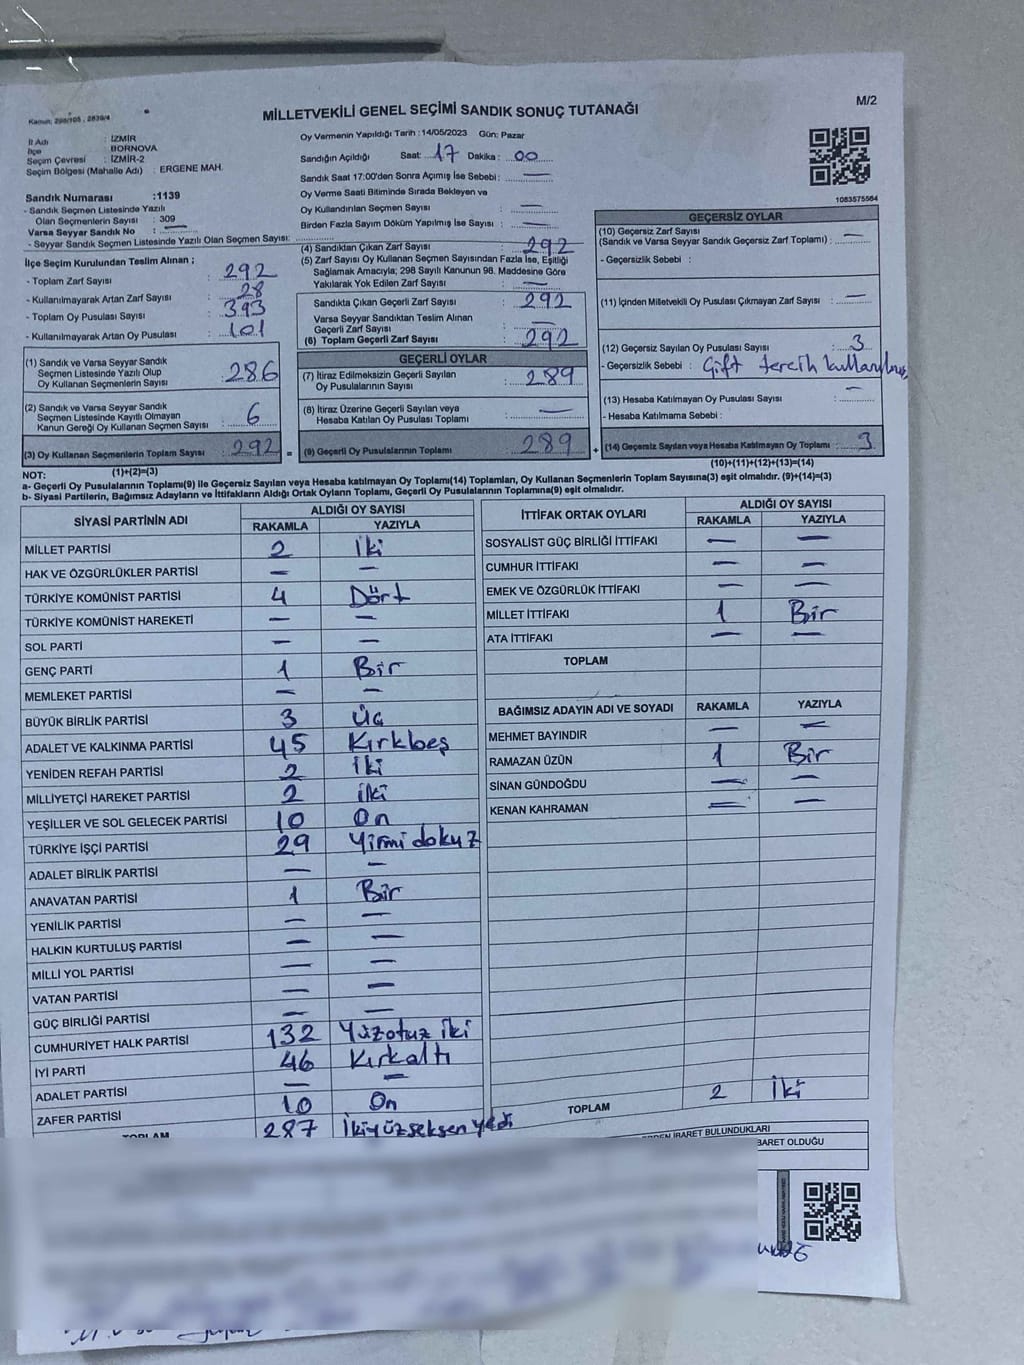 M/2
Kanun: 298/105 , 2839/4
MİLLETVEKİLİ GENEL SEÇİMİ SANDIK SONUÇ TUTANAĞI
İl Adı : İZMİR
İlçe : BORNOVA
Seçim Çevresi : İZMİR-2
Seçim Bölgesi (Mahalle Adı) : ERGENE MAH.
Sandık Numarası :1139
- Sandık Seçmen Listesinde Yazılı
Olan Seçmenlerin Sayısı : 309
Varsa Seyyar Sandık No : —
- Seyyar Sandık Seçmen Listesinde Yazılı Olan Seçmen Sayısı:
İlçe Seçim Kurulundan Teslim Alınan ;
- Toplam Zarf Sayısı : 292
- Kullanılmayarak Artan Zarf Sayısı : 28
- Toplam Oy Pusulası Sayısı : 393
- Kullanılmayarak Artan Oy Pusulası : 101
(1) Sandık ve Varsa Seyyar Sandık
Seçmen Listesinde Yazılı Olup
Oy Kullanan Seçmenlerin Sayısı : 286
(2) Sandık ve Varsa Seyyar Sandık
Seçmen Listesinde Kayıtlı Olmayan
Kanun Gereği Oy Kullanan Seçmen Sayısı : 6
(3) Oy Kullanan Seçmenlerin Toplam Sayısı : 292
(1)+(2)=(3)
Oy Vermenin Yapıldığı Tarih : 14/05/2023 Gün: Pazar
Sandığın Açıldığı Saat: 17 Dakika : 00
Sandık Saat 17:00'den Sonra Açımış İse Sebebi : —
Oy Verme Saati Bitiminde Sırada Bekleyen ve
Oy Kullandırılan Seçmen Sayısı : —
Birden Fazla Sayım Döküm Yapılmış İse Sayısı : —
(4) Sandıktan Çıkan Zarf Sayısı : 292
(5) Zarf Sayısı Oy Kullanan Seçmen Sayısından Fazla İse, Eşitliği
Sağlamak Amacıyla; 298 Sayılı Kanunun 98. Maddesine Göre
Yakılarak Yok Edilen Zarf Sayısı : —
Sandıkta Çıkan Geçerli Zarf Sayısı : 292
Varsa Seyyar Sandıktan Teslim Alınan
Geçerli Zarf Sayısı : —
(6) Toplam Geçerli Zarf Sayısı : 292
GEÇERLİ OYLAR
(7) İtiraz Edilmeksizin Geçerli Sayılan
Oy Pusulalarının Sayısı : 289
(8) İtiraz Üzerine Geçerli Sayılan veya
Hesaba Katılan Oy Pusulası Toplamı : —
= (9) Geçerli Oy Pusulalarının Toplamı : 289
1083575564
GEÇERSİZ OYLAR
(10) Geçersiz Zarf Sayısı
(Sandık ve Varsa Seyyar Sandık Geçersiz Zarf Toplamı) : —
- Geçersizlik Sebebi :
(11) İçinden Milletvekili Oy Pusulası Çıkmayan Zarf Sayısı : —
(12) Geçersiz Sayılan Oy Pusulası Sayısı : 3
- Geçersizlik Sebebi : Çift tercih kullanılmış
(13) Hesaba Katılmayan Oy Pusulası Sayısı : —
- Hesaba Katılmama Sebebi :
+ (14) Geçersiz Sayılan veya Hesaba Katılmayan Oy Toplamı : 3
(10)+(11)+(12)+(13)=(14)
NOT:
a- Geçerli Oy Pusulalarının Toplamı(9) ile Geçersiz Sayılan veya Hesaba katılmayan Oy Toplamı(14) Toplamları, Oy Kullanan Seçmenlerin Toplam Sayısına(3) eşit olmalıdır. (9)+(14)=(3)
b- Siyasi Partilerin, Bağımsız Adayların ve İttifakların Aldığı Ortak Oyların Toplamı, Geçerli Oy Pusulalarının Toplamına(9) eşit olmalıdır.
SİYASİ PARTİNİN ADI ALDIĞI OY SAYISI
RAKAMLA YAZIYLA
MİLLET PARTİSİ 2 İki
HAK VE ÖZGÜRLÜKLER PARTİSİ — —
TÜRKİYE KOMÜNİST PARTİSİ 4 Dört
TÜRKİYE KOMÜNİST HAREKETİ — —
SOL PARTİ — —
GENÇ PARTİ 1 Bir
MEMLEKET PARTİSİ — —
BÜYÜK BİRLİK PARTİSİ 3 Üç
ADALET VE KALKINMA PARTİSİ 45 Kırkbeş
YENİDEN REFAH PARTİSİ 2 İki
MİLLİYETÇİ HAREKET PARTİSİ 2 iki
YEŞİLLER VE SOL GELECEK PARTİSİ 10 On
TÜRKİYE İŞÇİ PARTİSİ 29 Yirmi dokuz
ADALET BİRLİK PARTİSİ — —
ANAVATAN PARTİSİ 1 Bir
YENİLİK PARTİSİ — —
HALKIN KURTULUŞ PARTİSİ — —
MİLLİ YOL PARTİSİ — —
VATAN PARTİSİ — —
GÜÇ BİRLİĞİ PARTİSİ — —
CUMHURİYET HALK PARTİSİ 132 Yüzotuz iki
İYİ PARTİ 46 Kırkaltı
ADALET PARTİSİ — —
ZAFER PARTİSİ 10 On
TOPLAM 287 İkiyüzseksen yedi
İTTİFAK ORTAK OYLARI ALDIĞI OY SAYISI
RAKAMLA YAZIYLA
SOSYALİST GÜÇ BİRLİĞİ İTTİFAKI — —
CUMHUR İTTİFAKI — —
EMEK VE ÖZGÜRLÜK İTTİFAKI — —
MİLLET İTTİFAKI 1 Bir
ATA İTTİFAKI — —
TOPLAM
BAĞIMSIZ ADAYIN ADI VE SOYADI RAKAMLA YAZIYLA
MEHMET BAYINDIR — —
RAMAZAN ÜZÜN 1 Bir
SİNAN GÜNDOĞDU — —
KENAN KAHRAMAN — —
TOPLAM 2 İki
İBARET BULUNDUKLARI
BARET OLDUĞU